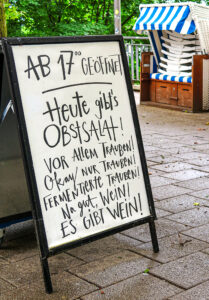 AB 17⁰⁰ GEÖFFNET!
Heute gibt's
OBSTSALAT!
VOR ALLEM TRAUBEN!
Okay, NUR TRAUBEN!
FERMENTIERTE TRAUBEN!
Na gut, WEIN!
ES GIBT WEIN!